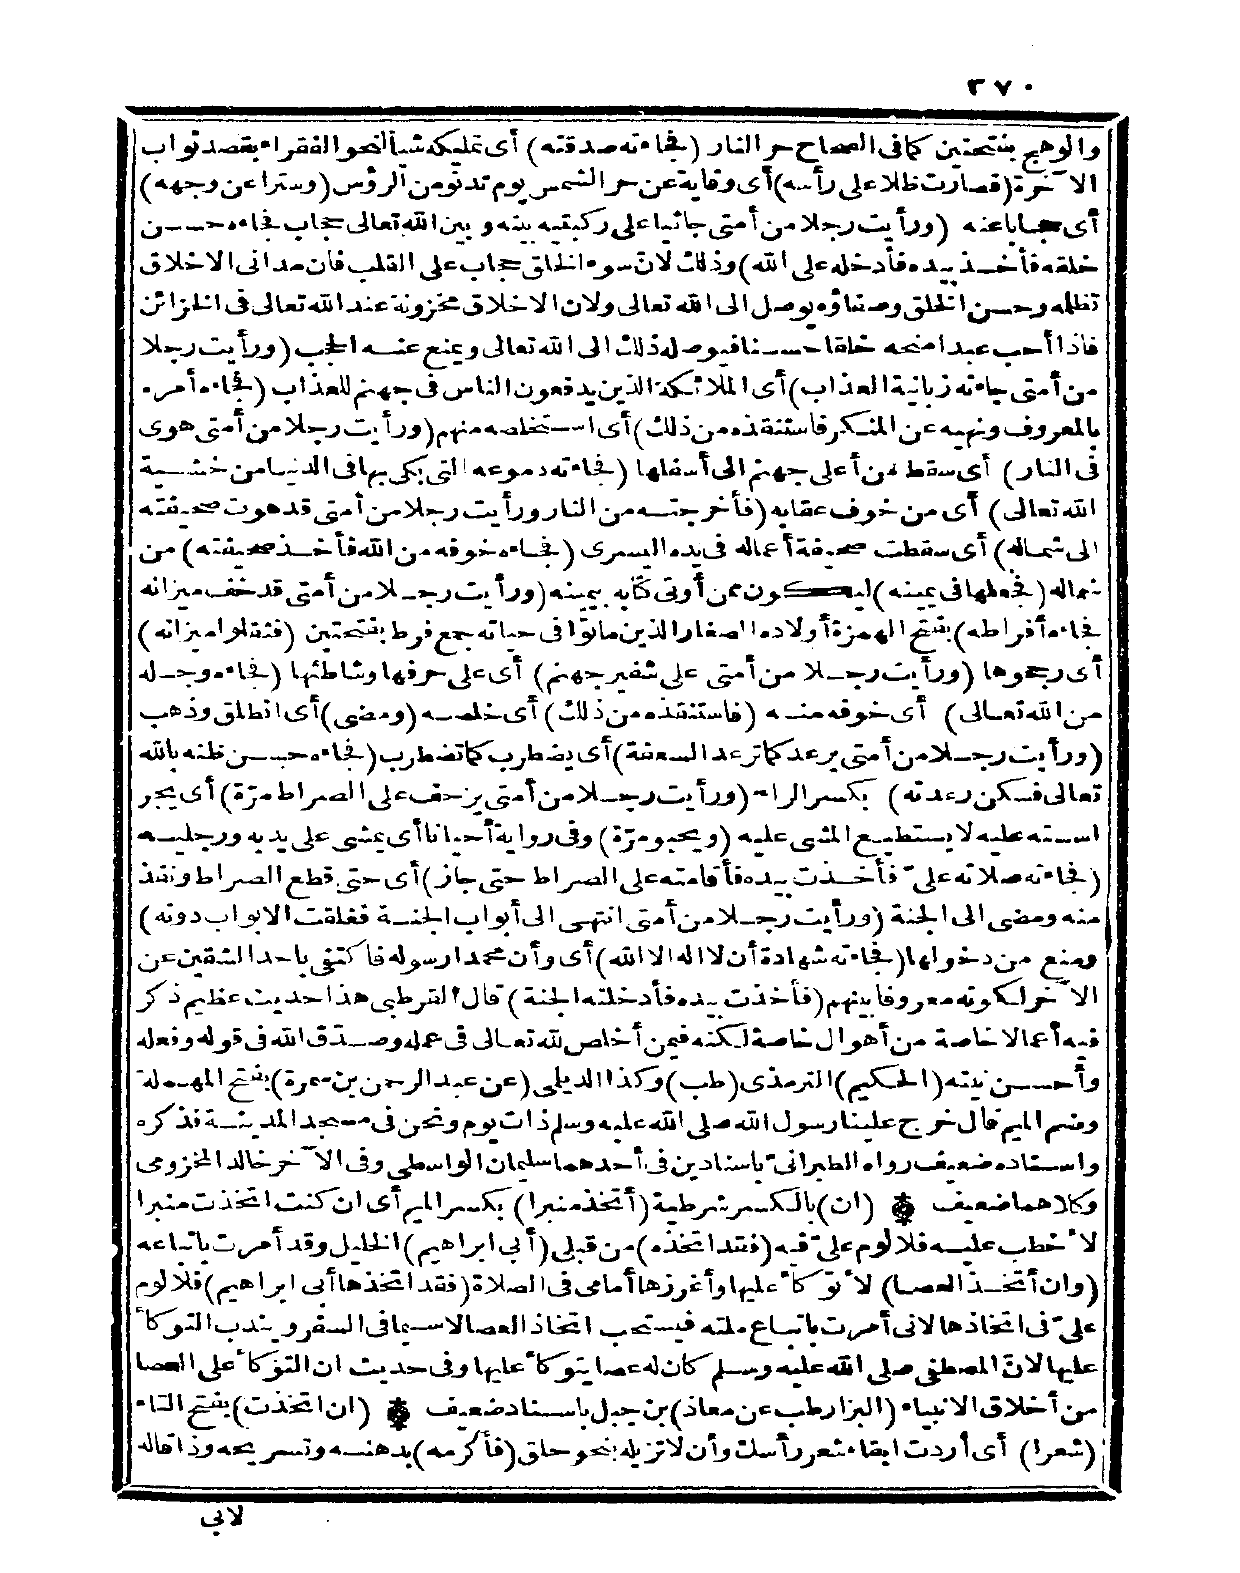 ٣٧٠
والوهيج بفتحتين كما في الصحاح حر النار (فجاءته صدقته) أى تمليكه شيأ لنحو الفقراء بقصد ثواب
الآخرة (فصارت ظلا على رأسه) أى وقاية عن حر الشمس يوم تدنو من الرؤس (وسترا عن وجهه)
أى حجابا عنه (ورأيت رجلا من أمتى جاثيا على ركبتيه بينه وبين الله تعالى حجاب فجاءه حسن
خلقه فأخذ بيده فأدخله على الله) وذلك لان سوء الخلق حجاب على القلب فان مدانى الاخلاق
تظلمه وحسن الخلق وصفاؤه يوصل الى الله تعالى ولان الاخلاق مخزونة عند الله تعالى فى الخزائن
فاذا أحب عبدا منحه خلقا حسنا فيوصله ذلك الى الله تعالى ويمنع عنه الحجب (ورأيت رجلا
من أمتى جاءته زبانية العذاب) أى الملائكة الذين يدفعون الناس فى جهنم للعذاب (فجاءه أمره
بالمعروف ونهيه عن المنكر فاستنقذه من ذلك) أى استخلصه منهم (ورأيت رجلا من أمتى هوى
فى النار) أى سقط من أعلى جهنم الى أسفلها (فجاءته دموعه التى بكى بها فى الدنيا من خشية
الله تعالى) أى من خوف عقابه (فأخرجته من النار ورأيت رجلا من أمتى قد هوت صحيفته
الى شماله) أى سقطت صحيفة أعماله فى يده اليسرى (فجاءه خوفه من الله فأخذ صحيفته) من
شماله (فجعلها فى يمينه) ليكون ممن أوتى كتابه بيمينه (ورأيت رجلا من أمتى قد خف ميزانه
فجاءه أفراطه) بفتح الهمزة أولاده الصغار الذين ماتوا فى حياته جمع فرط بفتحتين (فثقلوا ميزانه)
أى رجحوها (ورأيت رجلا من أمتى على شفير جهنم) أى على حرفها وشاطئها (فجاءه وجله
من الله تعالى) أى خوفه منه (فاستنقذه من ذلك) أى خلصه (ومضى) أى انطلق وذهب
(ورأيت رجلا من أمتى يرعد كما ترعد السعفة) أى يضطرب كما تضطرب (فجاءه حسن ظنه بالله
تعالى فسكن رعدته) بكسر الراء (ورأيت رجلا من أمتى يزحف على الصراط مرّة) أى يجر
استه عليه لا يستطيع المشى عليه (ويحبو مرّة) وفى رواية أحيانا أى يمشى على يديه ورجليه
(فجاءته صلاته علىّ فأخذت بيده فأقامته على الصراط حتى جاز) أى حتى قطع الصراط ونفذ
منه ومضى الى الجنة (ورأيت رجلا من أمتى انتهى الى أبواب الجنة فغلقت الابواب دونه)
ومنع من دخولها (فجاءته شهادة أن لا اله الا الله) أى وأن محمدا رسوله فاكتفى باحد الشقين عن
الآخر لكونه معروفا بينهم (فأخذت بيده فأدخلته الجنة) قال القرطبى هذا حديث عظيم ذكر
فيه أعمالا خاصة من أهوال خاصة لكنه فيمن أخلص لله تعالى فى عمله وصدق الله فى قوله وفعله
وأحسن نيته (الحكيم) الترمذى (طب) وكذا الديلمى (عن عبد الرحمن بن سمرة) بفتح المهملة
وضم الميم قال خرج علينا رسول الله صلى الله عليه وسلم ذات يوم ونحن فى مسجد المدينة فذكره
واسناده ضعيف رواه الطبرانىّ باسنادين فى أحدهما سليمان الواسطى وفى الآخر خالد المخزومى
وكلاهما ضعيف (ان) بالكسر شرطية (أتخذ منبرا) بكسر الميم أى ان كنت اتخذت منبرا
لأخطب عليه فلا لوم علىّ فيه (فقد اتخذه) من قبلى (أبى ابراهيم) الخليل وقد أمرت باتباعه
(وان أتخذ العصا) لأتوكأ عليها وأغرزها أمامى فى الصلاة (فقد اتخذها أبى ابراهيم) فلا لوم
علىّ فى اتخاذها لانى أمرت باتباع ملته فيستحب اتخاذ العصا لاسيما فى السفر ويندب التوكأ
عليها لانّ المصطفى صلى الله عليه وسلم كان له عصا يتوكأ عليها وفى حديث ان التوكأ على العصا
من أخلاق الانبياء (البزار طب عن معاذ) بن جبل باسناد ضعيف (ان اتخذت) بفتح التاء
(شعرا) أى أردت ابقاء شعر رأسك وأن لا تزيله بنحو حلق (فأكرمه) بدهنه وتسريحه وذا قاله
لابى